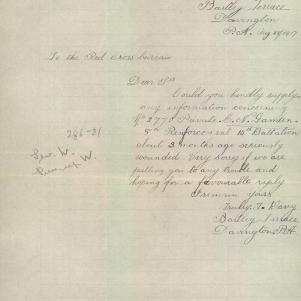 Bartley Terrace
Davington
P.A. Aug 29 1917
To the Red Cross bureau
Dear Sir
Could you kindly supply
any information concerning
No 277 Private
5th Reinforcement 10th Battalion
about 3 months ago seriously
wounded. Very sorry if we are
putting you to any trouble and
hoping for a favourable reply
I remain yours
Truly
Bartley Terrace
Davington P.A.
W.
W.